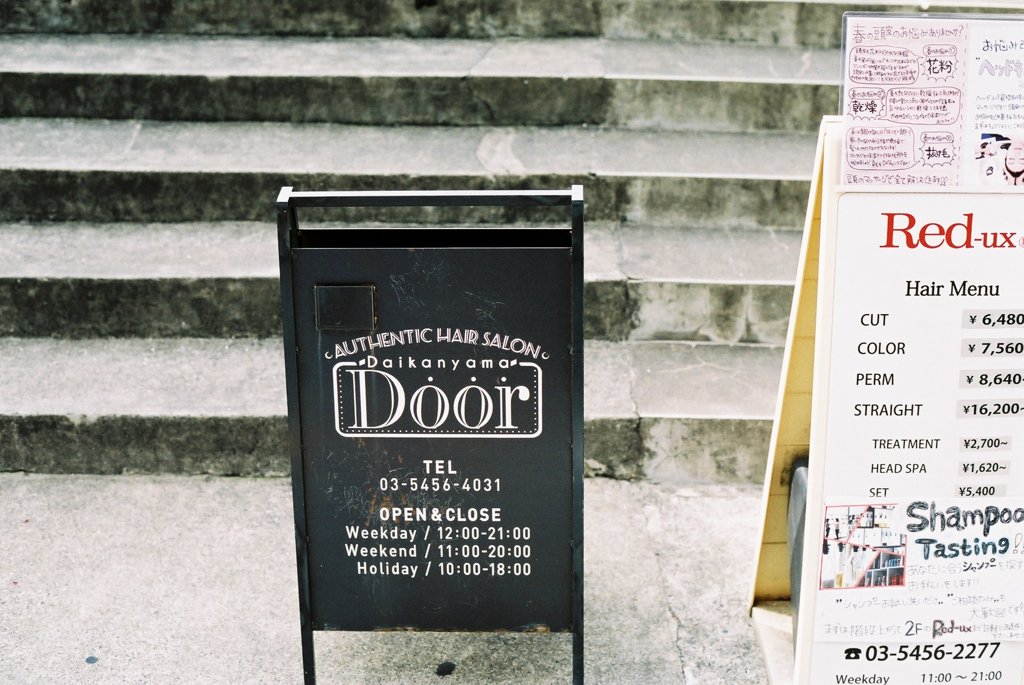 AUTHENTIC HAIR SALON
Daikanyama
Door
TEL
03-5456-4031
OPEN&CLOSE
Weekday / 12:00-21:00
Weekend / 11:00-20:00
Holiday / 10:00-18:00
春の頭皮のお悩みありませんか?
花粉
乾燥
抜け毛
頭のマッサージで全て解決できます!!
お悩み
"ヘッド
Red-ux
Hair Menu
CUT ¥ 6,480
COLOR ¥ 7,560
PERM ¥ 8,640~
STRAIGHT ¥16,200~
TREATMENT ¥2,700~
HEAD SPA ¥1,620~
SET ¥5,400
Shampoo
Tasting!!
あなたに合うシャンプーを探す
お手伝いをします!!
"シャンプーお試し洗いだけ" "ご相談のみ"も
大歓迎です!
まずは階段上がって2FのRed-ux
☎03-5456-2277
Weekday 11:00～21:00